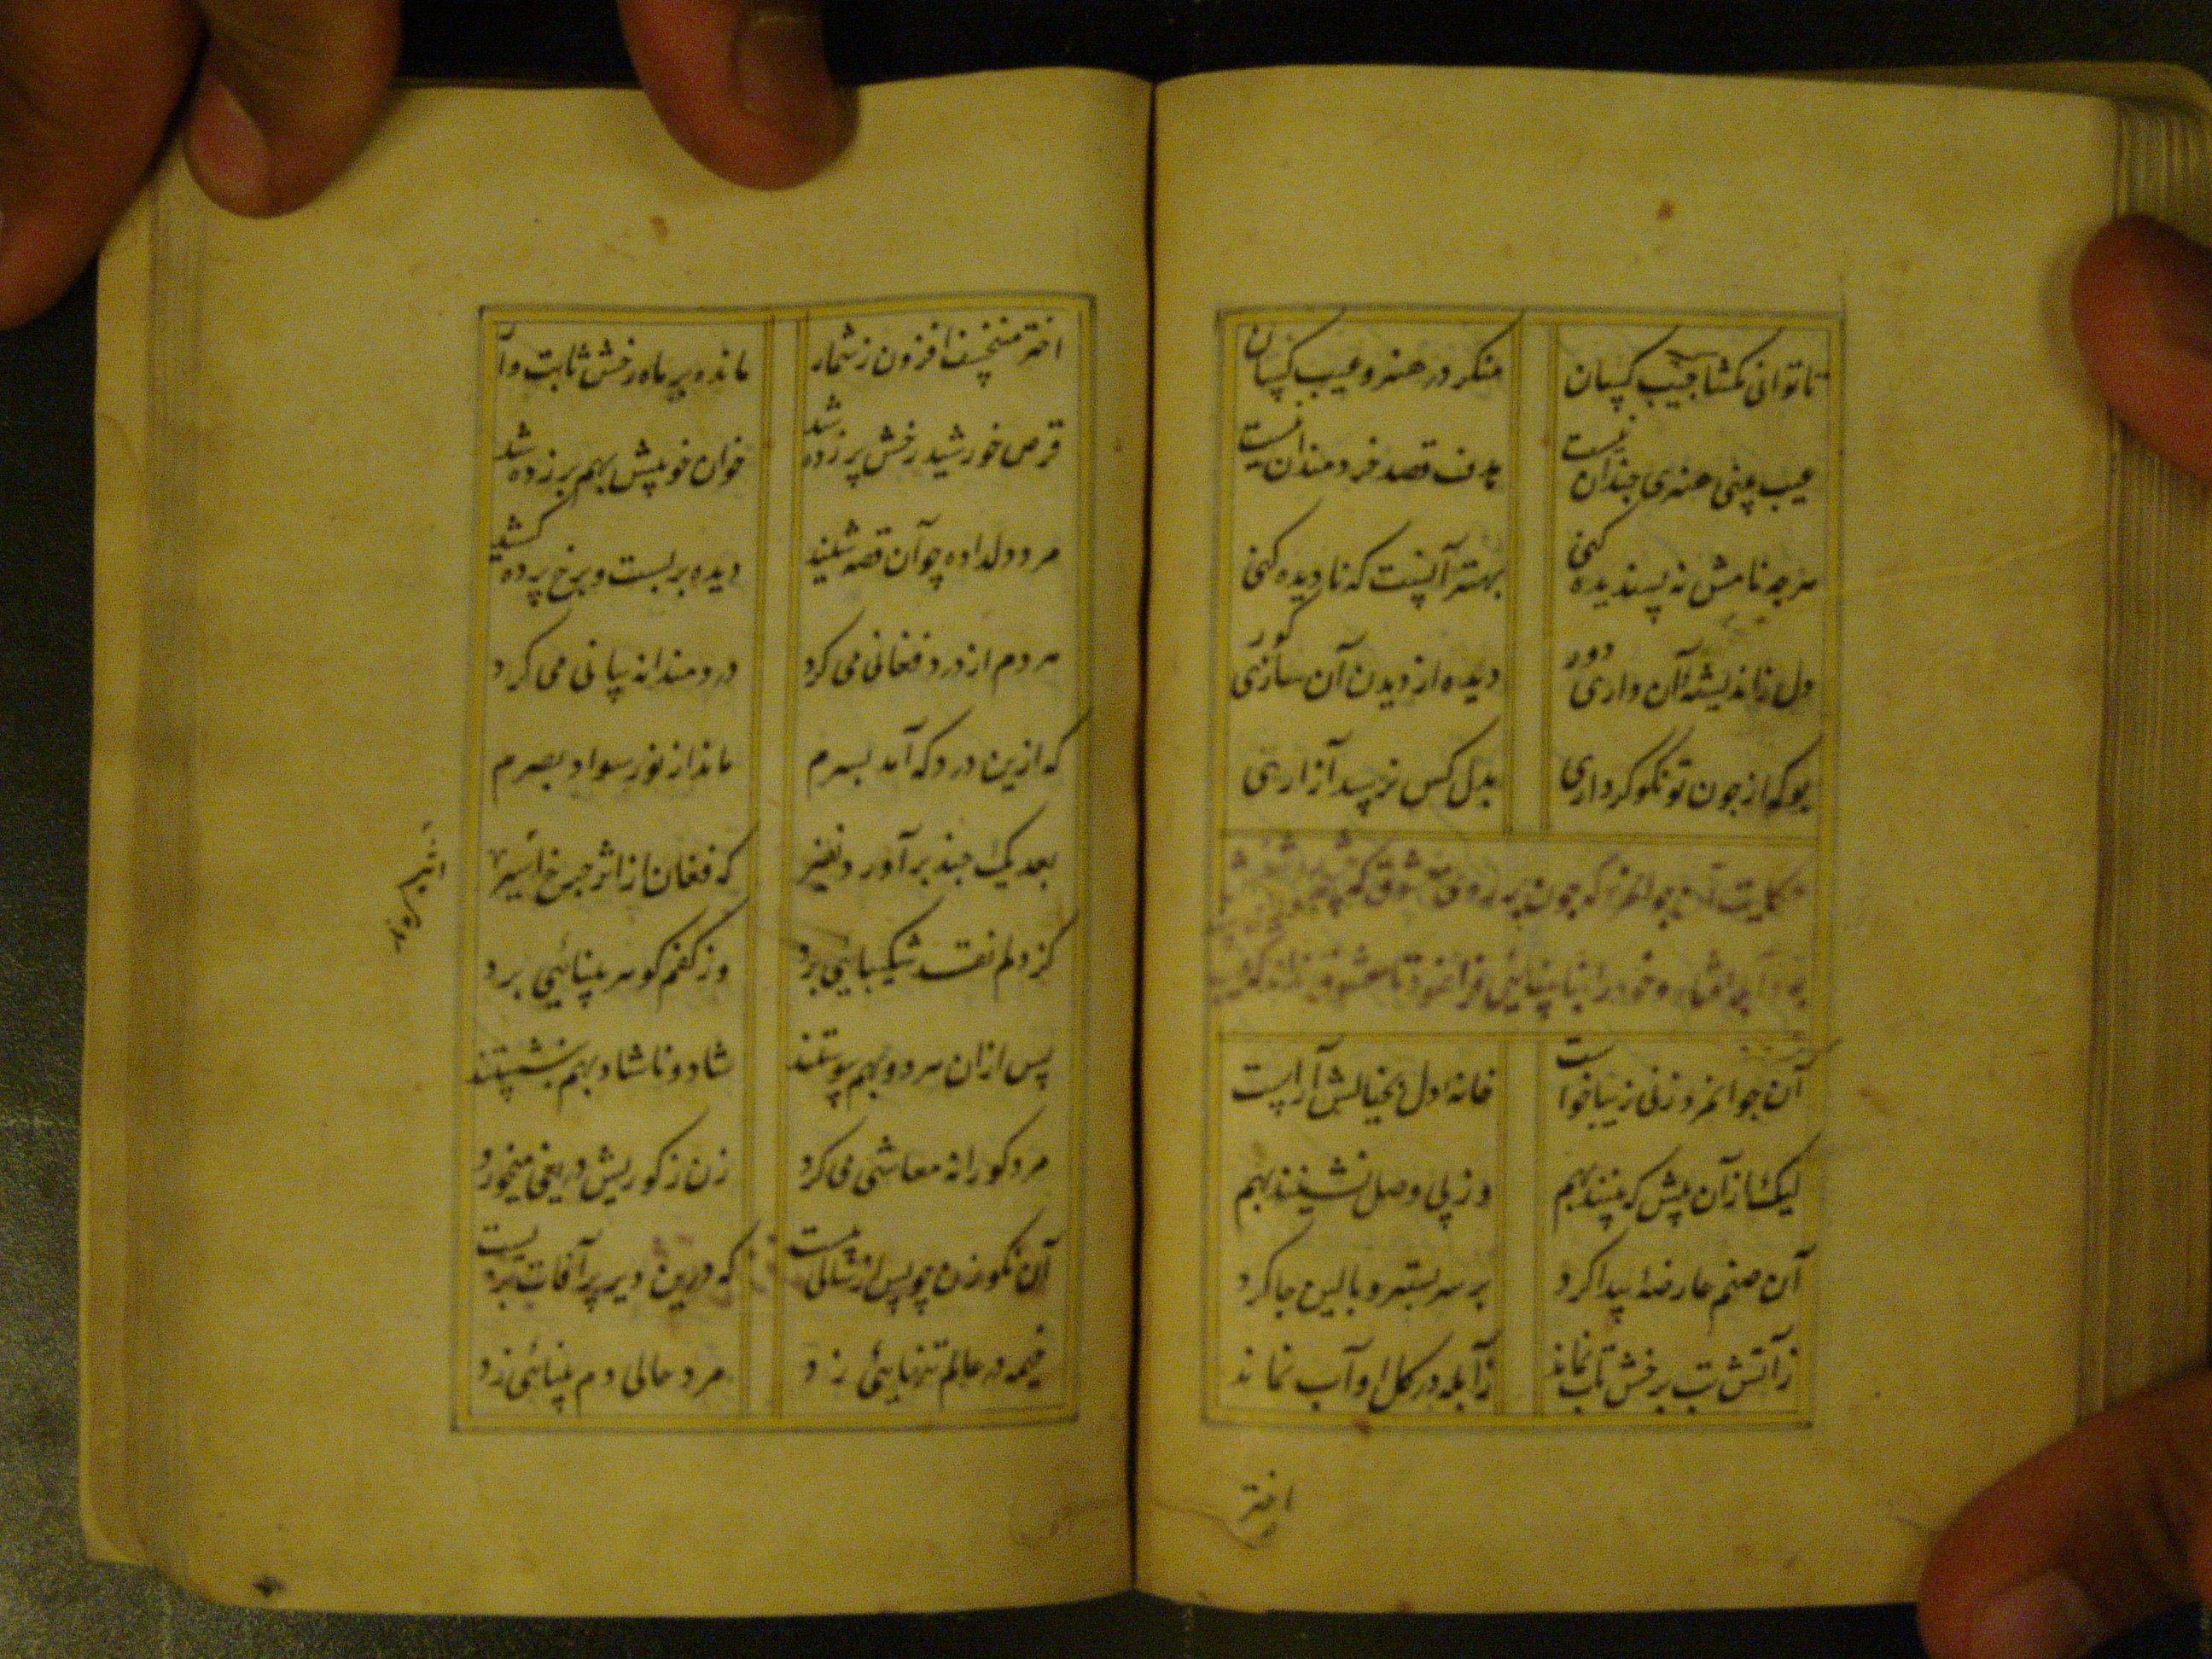 تا توانی مکشا جیب کسان منکر در هنر و عیب کسان
عیب بینی هنری چندان نیست هدف قصد خردمندان نیست
هرچه نامش نه پسندیده کنی بهتر آنست که نادیده کنی
دل ز اندیشهٔ آن داری دور دیده از دیدن آن سازی کور
بو که از چون تو نکو کرداری بدل کس نرسد آزاری
حکایت آن جوانمرد که چون بر روی معشوق
آبله افتاد و خود را بنابینائی فرا نمود تا معشوق نداند که
آن جوانمرد زنی زیبا خواست خانهٔ دل بخیالش آراست
لیک از آن پیش که بینند بهم وز پی وصل نشینند بهم
آن صنم عارضهٔ پیدا کرد بر سر بستر و بالین جا کرد
ز آتش تب برخش تاب نماند ز آبله در گل او آب نماند
اختر
اختر منخسف افزون ز شمار مانده بر ماه رخش ثابت وا
قرص خورشید رخش پر زده شد خوان خوبیش بهم بر زده شد
مرد دلداده چو آن قصه شنید دیده بر بست و برخ پرده کشید
هر دم از درد فغانی می کرد دردمندانه بیانی می کرد
که ازین درد که آمد بسرم ماند از نور سواد بصرم
بعد یک چند برآورد نفیر که فغان از اثر چرخ اثیر
کز دلم نقد شکیبایی برد وز کفم گوهر بینائی برد
پس از آن هر دو بهم پیوستند شاد و ناشاد بهم بنشستند
مرد کورانه معاشی می کرد زن ز کوریش دریغی میخورد
آن نکو زن چو پس از سالی بیست که درین دیر پر آفات بزیست
خیمه در عالم تنهائی زد مرد حالی دم بینائی زد